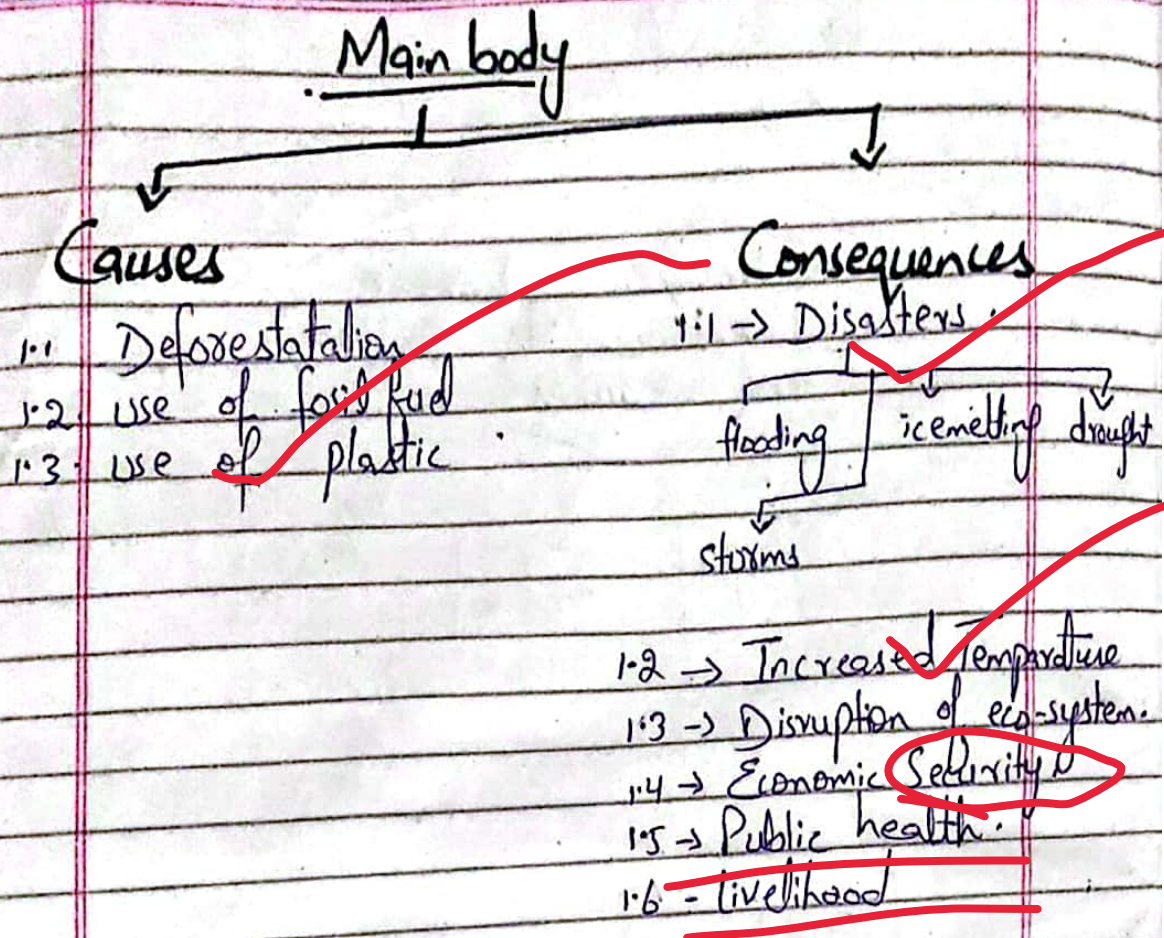 Main body
Causes
1.1 Deforestatation
1.2 use of fosil fuel
1.3 use of plastic
Consequences
1.1 → Disasters.
flooding icemelting drought
storms
1.2 → Increased Temparature
1.3 → Disruption of eco-system.
1.4 → Economic Security
1.5 → Public health.
1.6 - livelihood